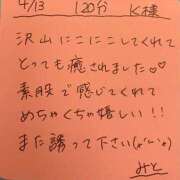 4/13 120分 K様
沢山にこにこしてくれて
とっても癒されました♡♡
素股で感じてくれて
めちゃくちゃ嬉しい!!
また誘って下さい(⁠//⁠)
みと